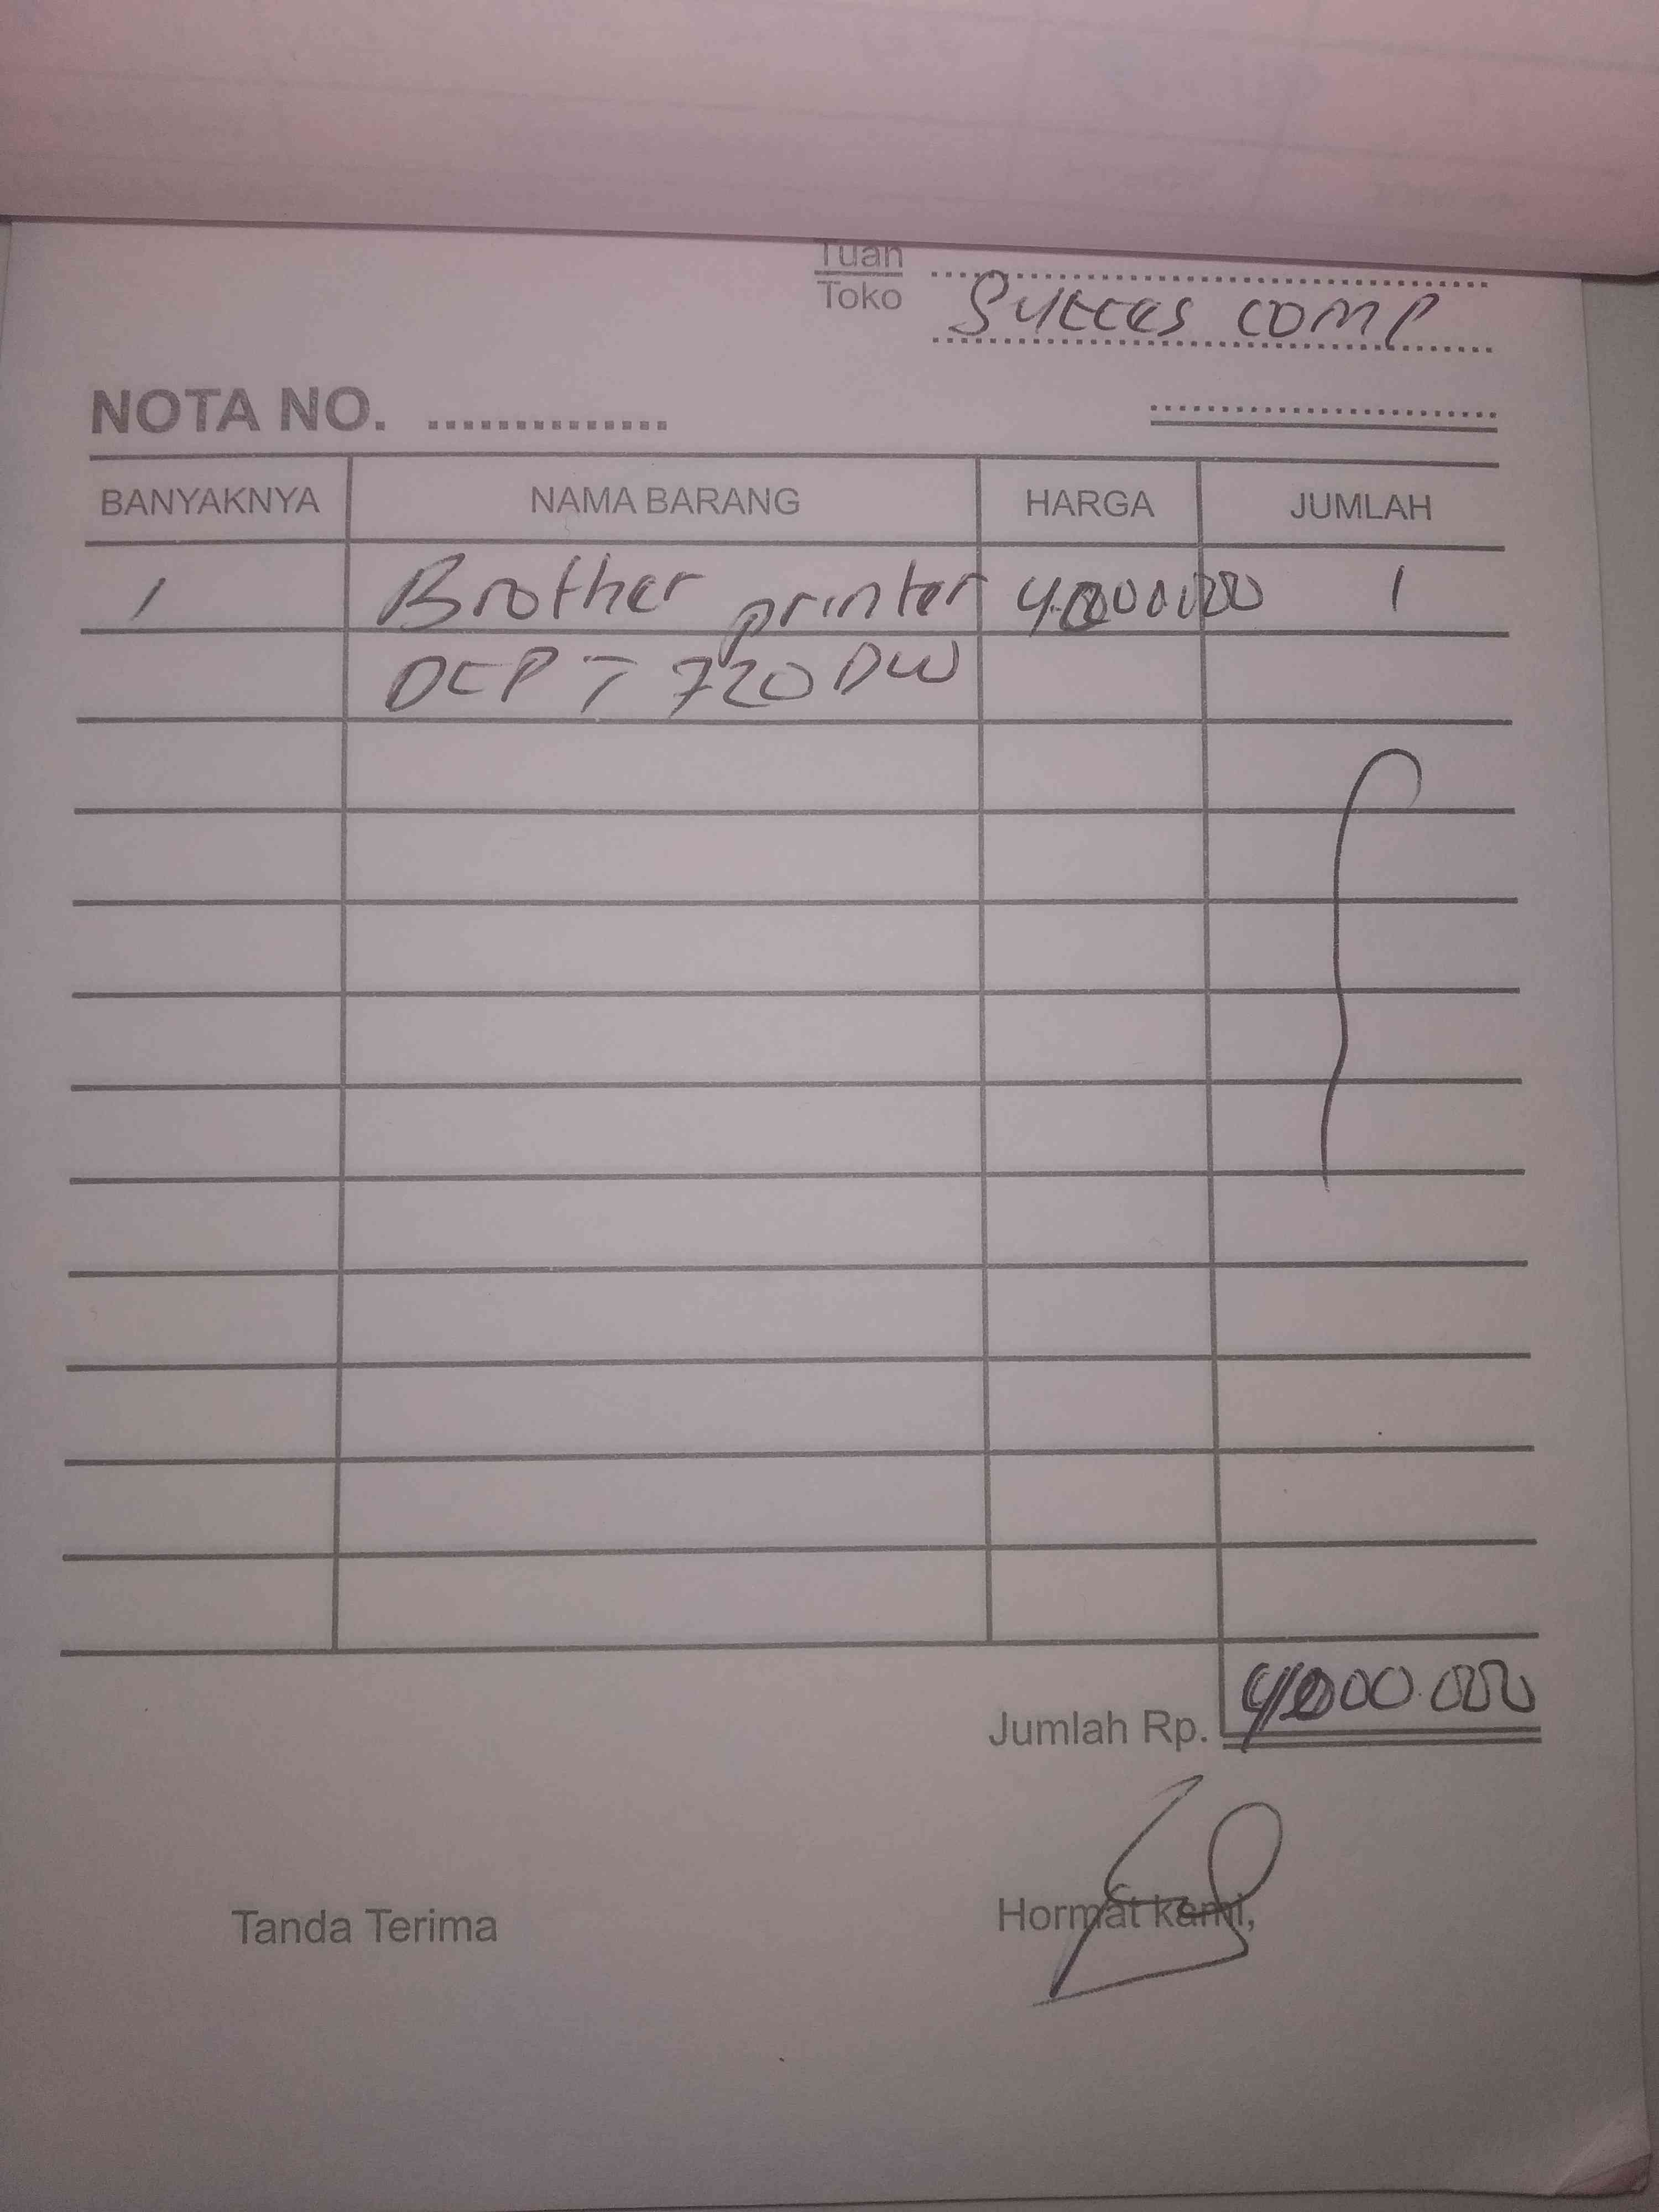 Tuan
Toko Succes comp
NOTA NO. ..............
BANYAKNYA NAMA BARANG HARGA JUMLAH
1 Brother printer 4.000.000 1
DCP T 720 DW
Jumlah Rp. 4.000.000
Tanda Terima Hormat kami,